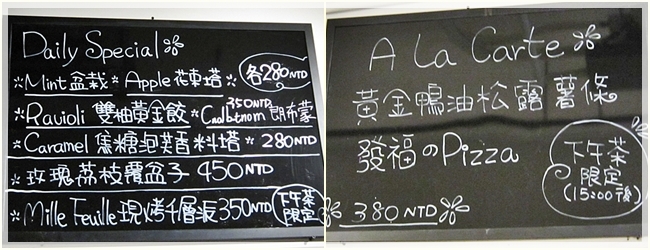 Daily Special
*Mint 盆栽 * Apple 花束塔 * 各280NTD
*Ravioli 雙柚黃金餃 350NTD 朗布蒙
*Caramel 焦糖泡芙香料塔 * 280NTD
*玫瑰荔枝覆盆子 450NTD
*Mille Feuille 現烤千層長 350NTD 下午茶限定
A La Carte
黃金鴨油松露薯條
發福のPizza
380NTD
下午茶
限定
(15:00後)